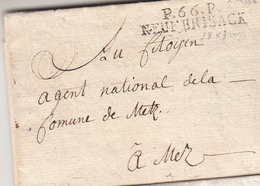 P.66.P.
NEUF-BRISACK
Au Citoyen
agent national dela
Comune de Metz
à Metz